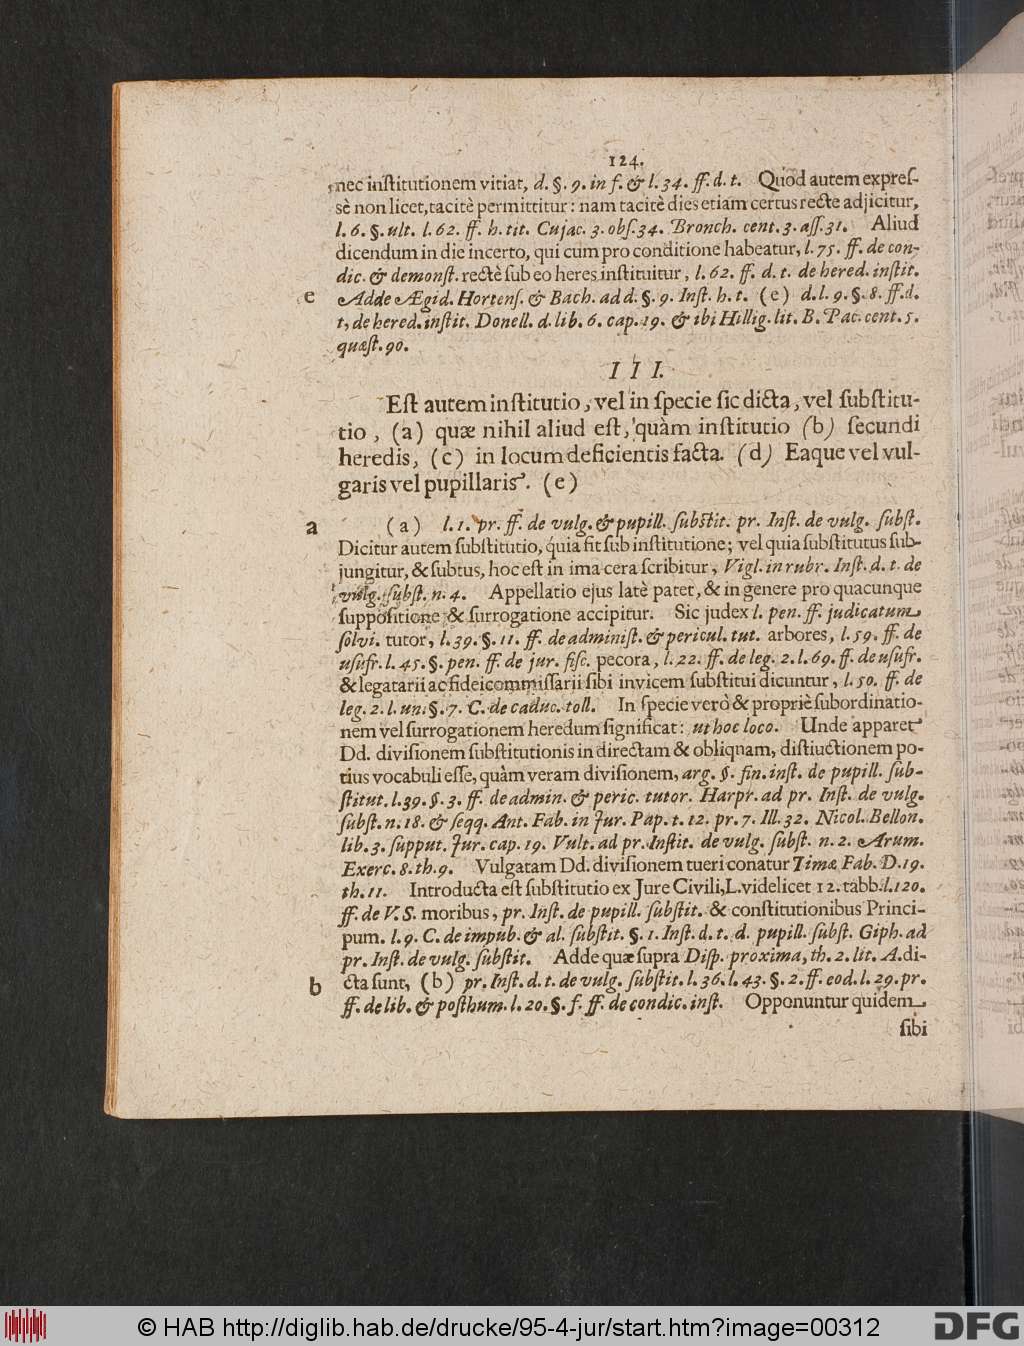 124.
nec institutionem vitiat, d. §. 9. in f. & l. 34. ff. d. t. Quod autem expreſ-
sè non licet, tacitè permittitur: nam tacitè dies etiam certus recte adjicitur,
l. 6. §. ult. l. 62. ff. h. tit. Cujac. 3. obſ. 34. Bronch. cent. 3. aſſ. 31. Aliud
dicendum in die incerto, qui cum pro conditione habeatur, l. 75. ff. de con-
dic. & demonſt. rectè ſub eo heres inſtituitur, l. 62. ff. d. t. de hered. inſtit.
e Adde Ægid. Hortenſ. & Bach. ad d. §. 9. Inſt. h. t. (e) d. l. 9. §. 8. ff. d.
t, de hered. inſtit. Donell. d. lib. 6. cap. 19. & ibi Hillig. lit. B. Pac. cent. 5.
quæſt. 90.
III.
Eſt autem inſtitutio, vel in ſpecie ſic dicta, vel ſubſtitu-
tio, (a) quæ nihil aliud eſt, quàm inſtitutio (b) ſecundi
heredis, (c) in locum deficientis facta. (d) Eaque vel vul-
garis vel pupillaris. (e)
a (a) l. 1. pr. ff. de vulg. & pupill. ſubſtit. pr. Inſt. de vulg. ſubſt.
Dicitur autem ſubſtitutio, quia fit ſub inſtitutione; vel quia ſubſtitutus ſub-
jungitur, & ſubtus, hoc eſt in ima cera ſcribitur, Vigl. in rubr. Inſt. d. t. de
vulg. ſubſt. n. 4. Appellatio ejus latè patet, & in genere pro quacunque
ſuppoſitione & ſurrogatione accipitur. Sic judex l. pen. ff. judicatum
ſolvi. tutor, l. 39. §. 11. ff. de adminiſt. & pericul. tut. arbores, l. 59. ff. de
uſufr. l. 45. §. pen. ff. de jur. fiſc. pecora, l. 22. ff. de leg. 2. l. 69. ff. de uſufr.
& legatarii ac fideicommiſſarii ſibi invicem ſubſtitui dicuntur, l. 50. ff. de
leg. 2. l. un. §. 7. C. de caduc. toll. In ſpecie verò & propriè ſubordinatio-
nem vel ſurrogationem heredum ſignificat: ut hoc loco. Unde apparet
Dd. diviſionem ſubſtitutionis in directam & obliquam, diſtiuctionem po-
tius vocabuli eſſe, quàm veram diviſionem, arg. §. fin. inſt. de pupill. ſub-
ſtitut. l. 39. §. 3. ff. de admin. & peric. tutor. Harpr. ad pr. Inſt. de vulg.
ſubſt. n. 18. & ſeqq. Ant. Fab. in Jur. Pap. t. 12. pr. 7. Ill. 32. Nicol. Bellon.
lib. 3. ſupput. Jur. cap. 19. Vult. ad pr. Inſtit. de vulg. ſubſt. n. 2. Arum.
Exerc. 8. th. 9. Vulgatam Dd. diviſionem tueri conatur Timæ Fab. D. 19.
th. 11. Introducta eſt ſubſtitutio ex Jure Civili, L. videlicet 12. tabb. l. 120.
ff. de V. S. moribus, pr. Inſt. de pupill. ſubſtit. & conſtitutionibus Princi-
pum. l. 9. C. de impub. & al. ſubſtit. §. 1. Inſt. d. t. d. pupill. ſubſt. Giph. ad
pr. Inſt. de vulg. ſubſtit. Adde quæ ſupra Diſp. proxima, th. 2. lit. A. di-
b cta ſunt, (b) pr. Inſt. d. t. de vulg. ſubſtit. l. 36. l. 43. §. 2. ff. eod. l. 29. pr.
ff. de lib. & poſthum. l. 20. §. f. ff. de condic. inſt. Opponuntur quidem
ſibi
© HAB http://diglib.hab.de/drucke/95-4-jur/start.htm?image=00312
DFG